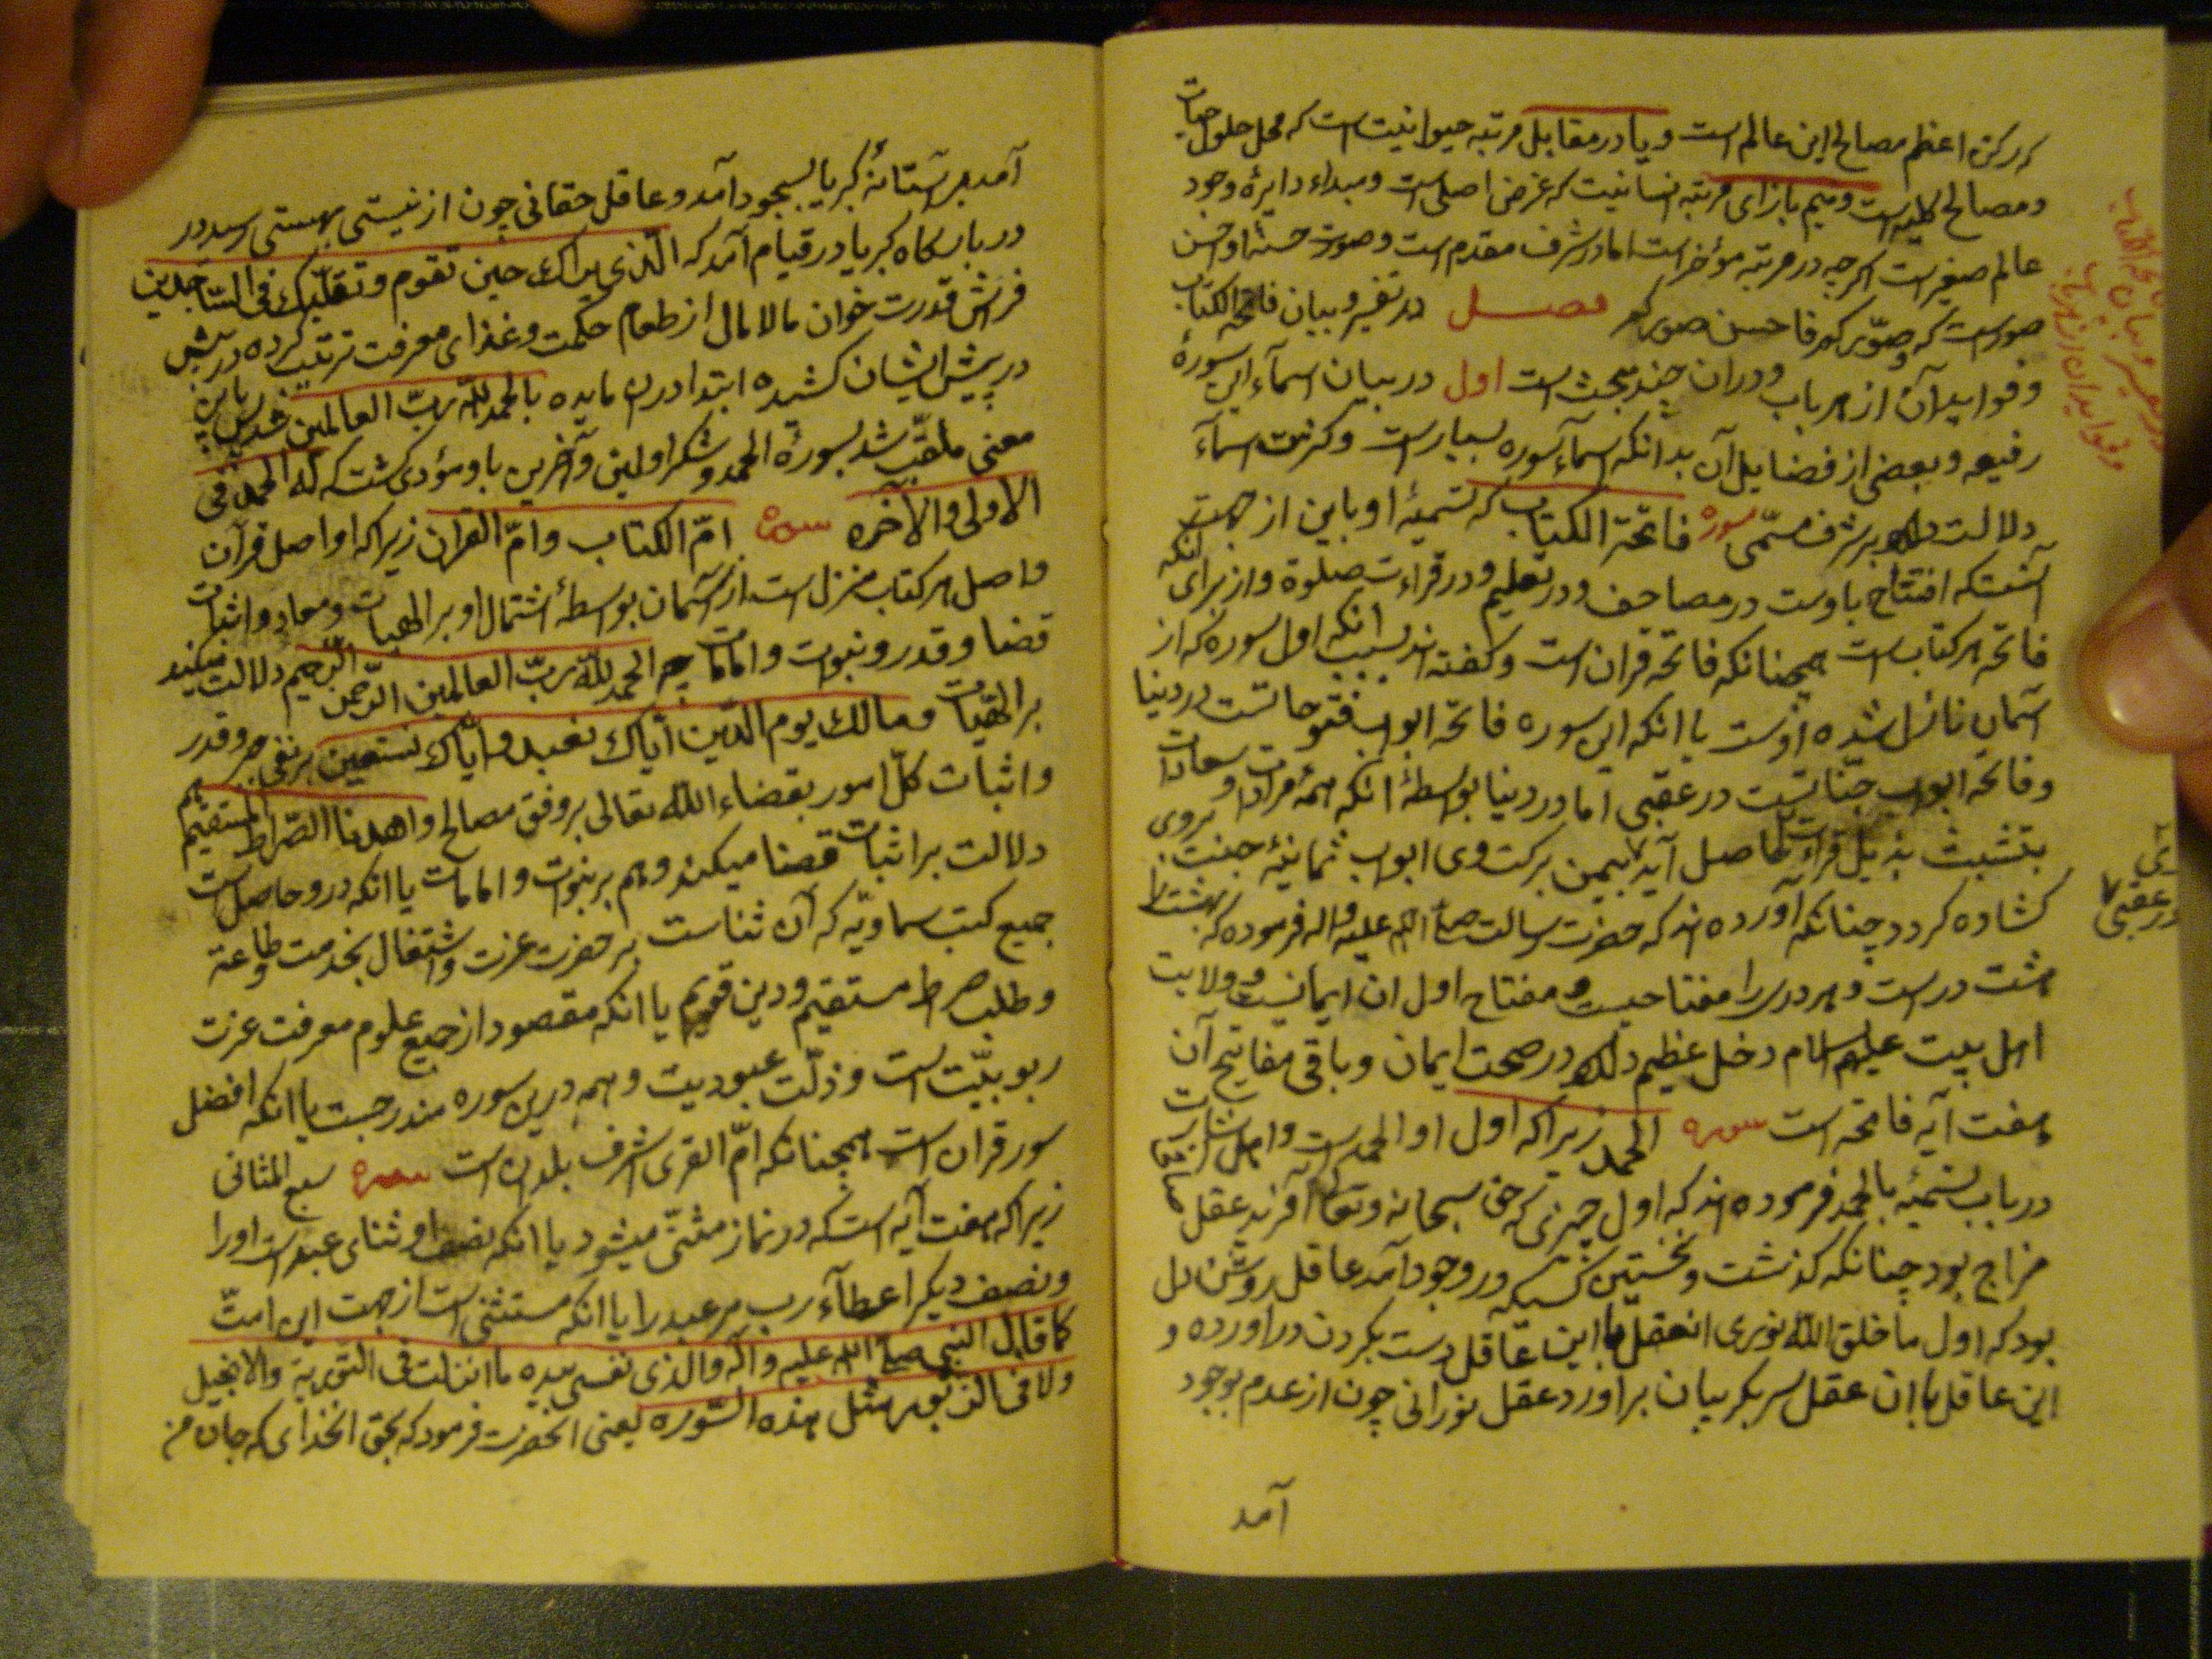 که رکن اعظم مصالح این عالم است و یا در مقابل مرتبه حیوانیت است که محل حلول حیات
و مصالح کلیه است و میم بازای مرتبه انسانیت که غرض اصلی است و مبداء دایرهٔ وجود
عالم صغیر است اکرچه در مرتبه مؤخر است اما در شرف مقدم است و صورت حسنهٔ او احسن
صورست که و صورکم فاحسن صورکم فصل در تفسیر و بیان فاتحه الکتاب
و فواید آن از هر باب و دران چند مبحث است اول در بیان اسمآء این سورهٔ
رفیعه و بعضی از فضایل آن بدانکه اسمآء سوره بسیارست و کثرت اسمآء
دلالت دارد بر شرف مسمّی سوره فاتحة الکتاب که تسمیهٔ او باین از جهت
آنستکه افتتاح باوست در مصاحف و در تعلیم و در قراءت صلوة و از برای انکه
فاتحه هر کتاب است همچنانکه فاتحه قران است و کفته اند بسبب انکه اول سوره که از
آسمان نازل شده اوست یا انکه این سوره فاتحه ابواب فتوحاتست در دنیا
و فاتحه ابواب جنّاتست در عقبی اما در دنیا بواسطهٔ انکه همهٔ مرادات و سعادات
بتشبث بذیل قراءت حاصل آید بیمن برکت وی ابواب ثمانیهٔ جنت بروی
در عقبی
کشاده کردد چنانکه آورده اند که حضرت رسالت صلی الله علیه و اله فرموده که بهشت را
هشت در است و هر دری را مفتاحیست و مفتاح اول ان ایمانست و ولایت
اهل بیت علیهم السلام دخل عظیم دارد در صحت ایمان و باقی مفاتیح آن
هفت آیه فاتحه است سوره الحمد زیرا که اول او الحمد است و اهل اشارت
در باب تسمیهٔ بالحمد فرموده اند که اول چیزی که حق سبحانه و تعالی آفرید عقل
مزاج بود چنانکه کذشت و نخستین کسیکه در وجود آمد عاقل روشن دل
بود که اول ما خلق الله نوری انعقل با این عاقل دست بکردن دراورده و
این عاقل با ان عقل سر بکریبان براورد عقل نورانی چون از عدم بوجود
آمد
آمد بر آستانهٔ کبریا بسجود آمد و عاقل حقانی چون از نیستی بهستی رسید در
در بارکاه کبریا در قیام آمد که الّذی یراک حین تقوم و تقلّبک فی السّاجدین
فراش قدرت خوان مالامال از طعام حکمت و غذای معرفت ترتیب کرده در پیش
در پیش ایشان کشیده ابتدا درین مایده بالحمد لله ربّ العالمین شد پس باین
معنی ملقّب شد بسورهٔ الحمد و شکر اولین و آخرین باو مؤدی کشت که له الحمد فی
الاولی والآخره سوره امّ الکتاب و امّ القران زیرا که او اصل قرآن
و اصل هر کتاب منزل است از آسمان بواسطهٔ اشتمال او بر الهیات و معاد و اثبات
قضا و قدر و نبوات و امامات چه الحمد لله ربّ العالمین الرّحمن الرّحیم دلالت میکند
بر الهیّات و مالک یوم الدّین ایّاک نعبد و ایّاک نستعین بر نفی جبر و قدر
و اثبات کلّ امور بقضاء الله تعالی بر وفق مصالح و اهدنا الصّراط المستقیم هم
دلالت بر اثبات قضا میکند و هم بر نبوات و امامات یا انکه در و حاصل است
جمیع کتب سماویّه که آن ثناست بر حضرت عزت و اشتغال بخدمت و طاعة
و طلب صراط مستقیم و دین قویم یا انکه مقصود از جمیع علوم معرفت عزت
ربوبیّت است و ذلّت عبودیت و همه درین سوره مندرجست یا انکه افضل
سور قران است همچنانکه امّ القری اشرف بلدان است سوره سبع المثانی
زیرا که هفت آیه است که در نماز مثنّی میشود یا انکه نصف او ثنای عبد است او را
و نصف دیکر اعطآء رب مر عبد را یا انکه مستثنی است از جهت این امتّ
کما قال النبی صلی الله علیه و آله والذی نفسی بیده ما انزلت فی التوریة والانجیل
ولا فی الزبور مثل هذه السّوره یعنی انحضرت فرمود که بحق انخدای که جان من